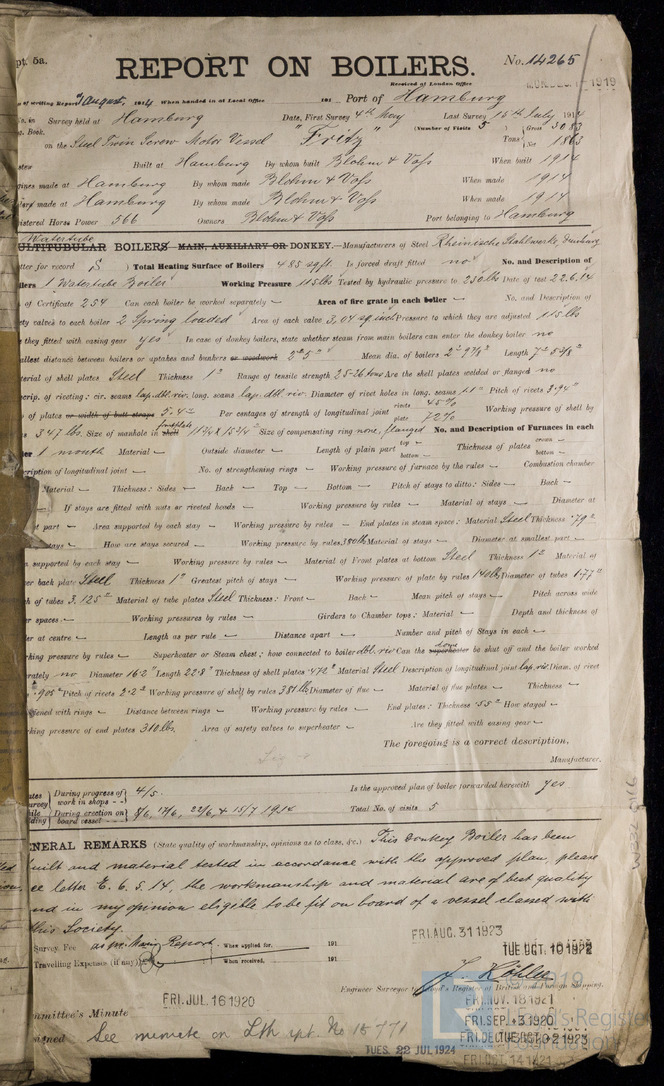 pt. 5a.
REPORT ON BOILERS.
No. 14265
Received at London Office
1919
of writing Report 7 August, 1914 When handed in at Local Office 191 Port of Hamburg
Survey held at Hamburg Date, First Survey 4th May Last Survey 15th July 1914
Book. (Number of Visits 5
on the Steel Twin Screw Motor Vessel "Fritz" Tons Gross 3083 Net 1865
Built at Hamburg By whom built Blohm & Voss When built 1914
gines made at Hamburg By whom made Blohm & Voss When made 1914
made at Hamburg By whom made Blohm & Voss When made 1914
istered Horse Power 566 Owners Blohm & Voss Port belonging to Hamburg
Watertube
ULTITUBULAR BOILERS MAIN, AUXILIARY OR DONKEY.—Manufacturers of Steel Rheinische Stahlwerke
tter for record S ) Total Heating Surface of Boilers 485 sq ft. Is forced draft fitted no No. and Description of
ilers 1 Watertube Boiler Working Pressure 115 lbs Tested by hydraulic pressure to 230 lbs Date of test 22.6.14
of Certificate 254 Can each boiler be worked separately — Area of fire grate in each boiler — No. and Description of
ety valves to each boiler 2 Spring loaded Area of each valve 3,04 sq. inch Pressure to which they are adjusted 115 lbs
they fitted with easing gear yes In case of donkey boilers, state whether steam from main boilers can enter the donkey boiler no
allest distance between boilers or uptakes and bunkers or woodwork 2'5" Mean dia. of boilers 2'-9⅞" Length 7'5⅝"
terial of shell plates Steel Thickness 1" Range of tensile strength 25-26 tons Are the shell plates welded or flanged no
scrip. of riveting: cir. seams lap. dbl. riv. long. seams lap. dbl. riv. Diameter of rivet holes in long. seams 1.1" Pitch of rivets 3.94"
of plates or width of butt straps 5.4" Per centages of strength of longitudinal joint rivets 45% plate 72% Working pressure of shell by
s 347 lbs. Size of manhole in shell 11¾ x 15¾" Size of compensating ring none, flanged No. and Description of Furnaces in each
1 mouth Material — Outside diameter — Length of plain part top — bottom — Thickness of plates crown — bottom —
cription of longitudinal joint — No. of strengthening rings — Working pressure of furnace by the rules — Combustion chamber
Material — Thickness: Sides — Back — Top — Bottom — Pitch of stays to ditto: Sides — Back —
— If stays are fitted with nuts or riveted heads — Working pressure by rules — Material of stays — Diameter at
part — Area supported by each stay — Working pressure by rules — End plates in steam space: Material Steel Thickness .79"
stays — How are stays secured — Working pressure by rules 380 lb Material of stays — Diameter at smallest part —
supported by each stay — Working pressure by rules — Material of Front plates at bottom Steel Thickness 1" Material of
er back plate Steel Thickness 1" Greatest pitch of stays — Working pressure of plate by rules 140 lb Diameter of tubes 1.77"
h of tubes 3.125" Material of tube plates Steel Thickness: Front — Back — Mean pitch of stays — Pitch across wide
er spaces.— Working pressures by rules — Girders to Chamber tops: Material — Depth and thickness of
er at centre — Length as per rule — Distance apart — Number and pitch of Stays in each —
rking pressure by rules — Superheater or Steam chest; how connected to boiler dbl. riv Can the superheater dome be shut off and the boiler worked
rately no Diameter 16.2" Length 22.8" Thickness of shell plates .472" Material Steel Description of longitudinal joint lap. riv. Diam. of rivet
.905" Pitch of rivets 2.2" Working pressure of shell by rules 381 lb Diameter of flue — Material of flue plates — Thickness —
ffened with rings — Distance between rings — Working pressure by rules — End plates: Thickness .55" How stayed —
rking pressure of end plates 310 lbs. Area of safety valves to superheater — Are they fitted with easing gear —
The foregoing is a correct description,
Manufacturer.
During progress of work in shops - - 4/5. Is the approved plan of boiler forwarded herewith yes
During erection on board vessel 8/6, 17/6, 22/6, & 15/7 1914 Total No. of visits 5
ENERAL REMARKS (State quality of workmanship, opinions as to class, &c.) This Donkey Boiler has been
built and material tested in accordance with the approved plan, please
ee letter E. 6. 5. 14, the workmanship and material are of best quality
and in my opinion eligible to be fit on board of a vessel classed with
this Society.
Survey Fee as pr. Main Report. When applied for, 191
Travelling Expenses (if any) When received, 191
FRI. AUG. 31 1923
TUE. OCT. 10 1922
J. Köhler
Engineer Surveyor to Lloyd's Register of British and Foreign Shipping.
FRI. JUL 16 1920
FRI. NOV. 18 1921
mmittee's Minute
FRI. SEP. -3 1920
signed See minute on Lth rpt. No 15771
TUES. 22 JUL 1924
FRI. OCT. 14 1921
© 2019
Lloyd's Register
Foundation